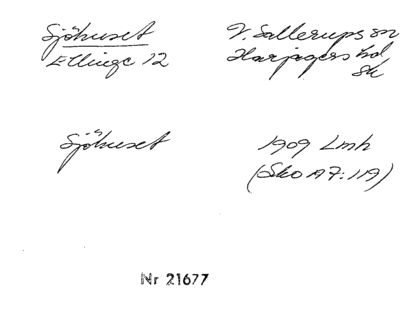 Sjöhuset V. Sallerups sn
Ellinge 12 Harjagers hd
Sk
Sjöhuset 1909 Lmh
(Sko A7:119)
Nr 21677